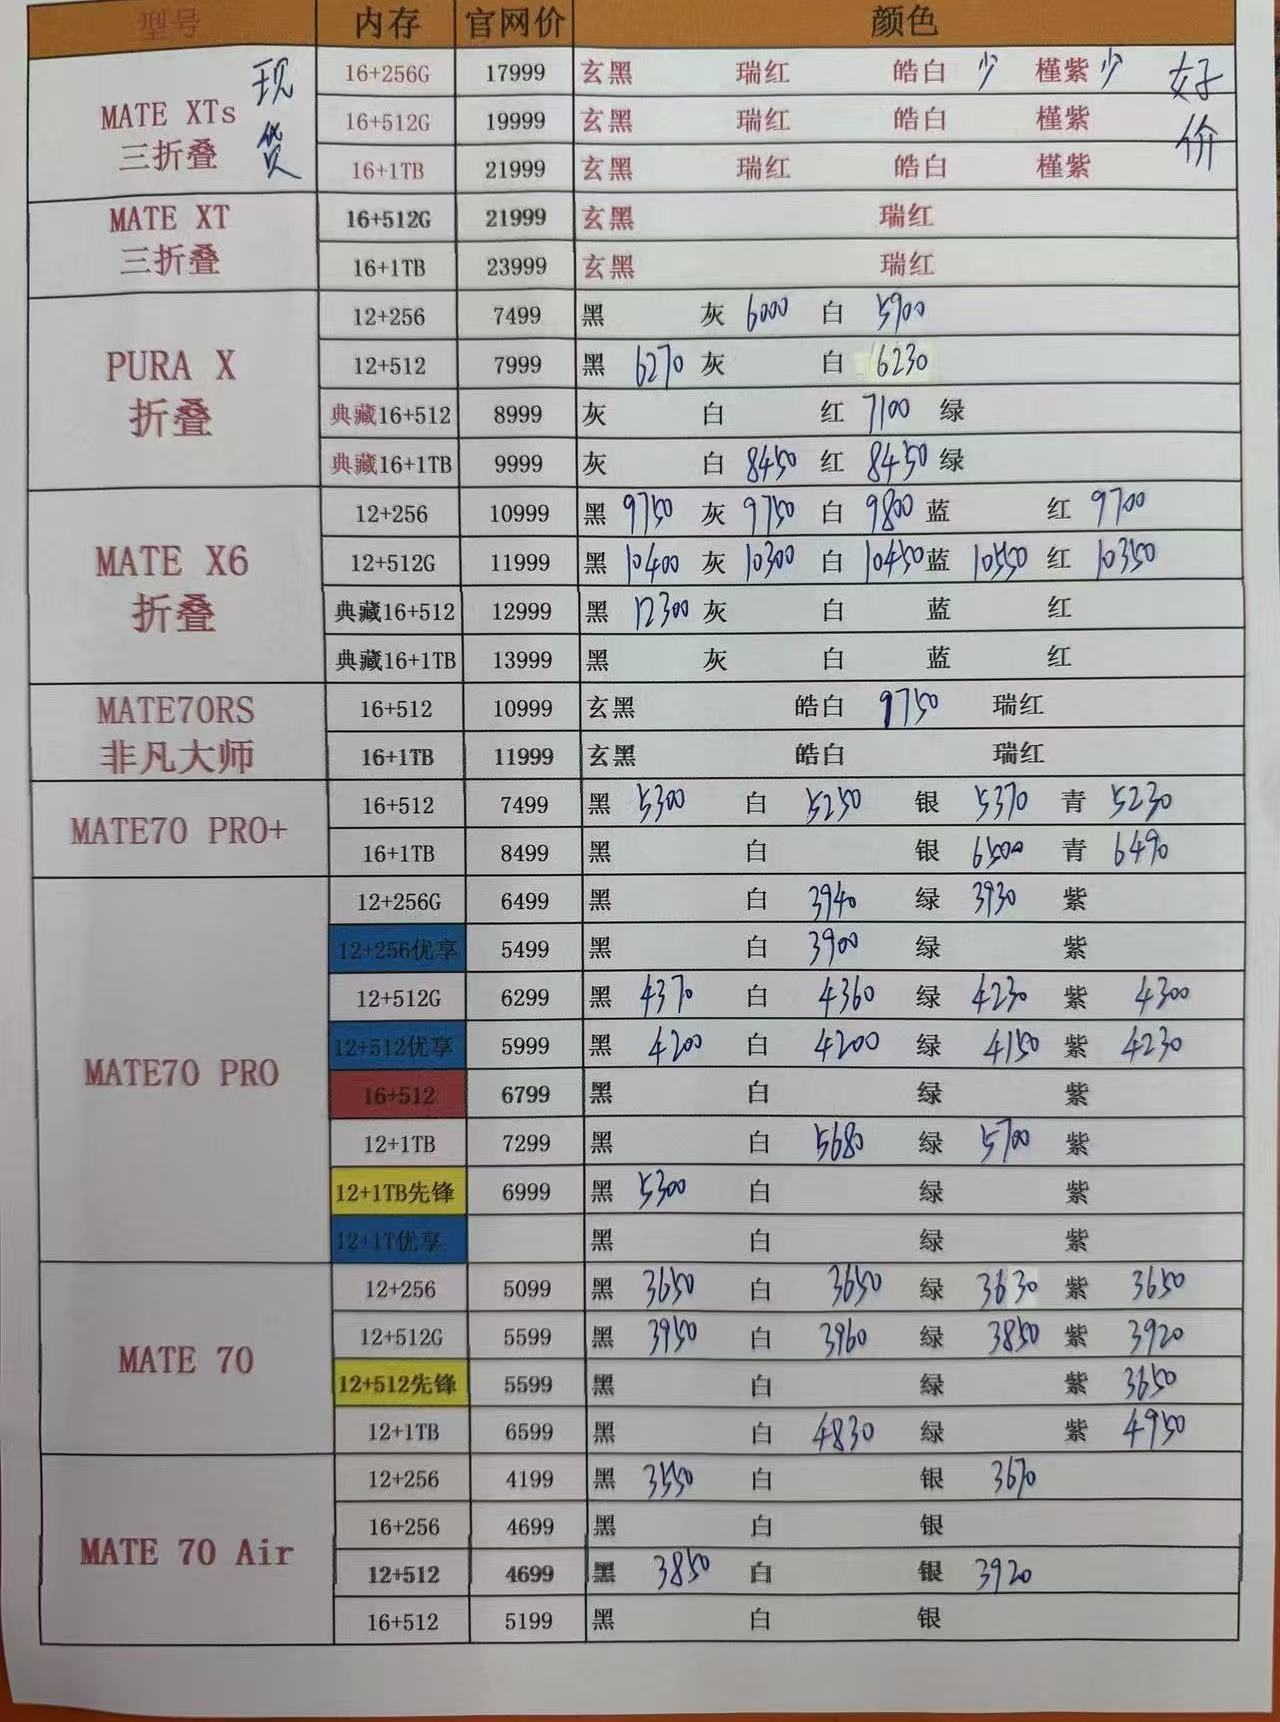 型号 内存 官网价 颜色
MATE XTs 三折叠 现货 16+256G 17999 玄黑 瑞红 皓白 少 槿紫 少 好价
16+512G 19999 玄黑 瑞红 皓白 槿紫
16+1TB 21999 玄黑 瑞红 皓白 槿紫
MATE XT 三折叠 16+512G 21999 玄黑 瑞红
16+1TB 23999 玄黑 瑞红
PURA X 折叠 12+256 7499 黑 灰 6000 白 5900
12+512 7999 黑 6270 灰 白 6230
典藏16+512 8999 灰 白 红 7100 绿
典藏16+1TB 9999 灰 白 8450 红 8450 绿
MATE X6 折叠 12+256 10999 黑 9750 灰 9750 白 9800 蓝 红 9700
12+512G 11999 黑 10400 灰 10300 白 10450 蓝 10550 红 10350
典藏16+512 12999 黑 12300 灰 白 蓝 红
典藏16+1TB 13999 黑 灰 白 蓝 红
MATE70RS 非凡大师 16+512 10999 玄黑 皓白 9750 瑞红
16+1TB 11999 玄黑 皓白 瑞红
MATE70 PRO+ 16+512 7499 黑 5300 白 5250 银 5370 青 5230
16+1TB 8499 黑 白 银 6500 青 6490
MATE70 PRO 12+256G 6499 黑 白 3940 绿 3930 紫
12+256优享 5499 黑 白 3900 绿 紫
12+512G 6299 黑 4370 白 4360 绿 4230 紫 4300
12+512优享 5999 黑 4200 白 4200 绿 4150 紫 4230
16+512 6799 黑 白 绿 紫
12+1TB 7299 黑 白 5680 绿 5700 紫
12+1TB先锋 6999 黑 5300 白 绿 紫
12+1T优享 黑 白 绿 紫
MATE 70 12+256 5099 黑 3650 白 3650 绿 3630 紫 3650
12+512G 5599 黑 3950 白 3960 绿 3850 紫 3920
12+512先锋 5599 黑 白 绿 紫 3650
12+1TB 6599 黑 白 4830 绿 紫 4950
MATE 70 Air 12+256 4199 黑 3550 白 银 3670
16+256 4699 黑 白 银
12+512 4699 黑 3850 白 银 3920
16+512 5199 黑 白 银